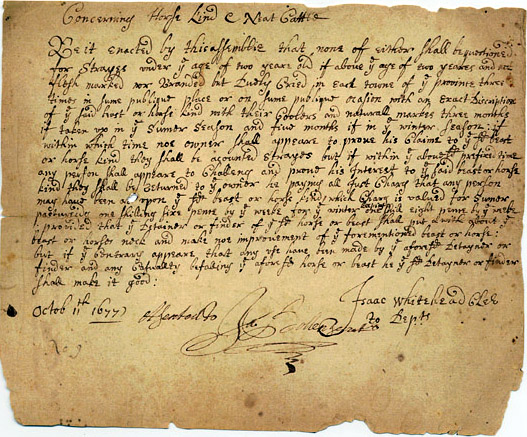 Concerning Horse kind & Neat Cattle
Be it enacted by this assemblie that none of either shall be questioned
for Strayes under ye age of two yeare old if above ye age of two yeares and are
flesh marked nor Branded but Duely Cried in each towne of ye province three
times in sume publique place or on sume publique ocasion with an Exact Discription
of ye said beast or horse kind with their Coolers and naturall markes three months
if taken up in ye Sumer Season and five months if in ye winter season: if
within which time noe owner shall appeare to prove his Claime to ye sd beast
or horse kind they shall be acounted strayes but if within ye above sd prefixt time
any person shall appeare to Challeng and prove his Interest to said beast or horse
kind they shall be Returned to ye owner he paying all Just Charg that any person
may have been at upon ye sd beast or horse kind which Charg is valued for Sumer
pasturing one shilling sixe pence by ye weeke for ye winter one shill eight pence by ye weeke
provided that ye Detainer or finder of ye sd horse or beast shall put a with about ye
beast or horses neck and make noe improvement of ye forementioned beast or horse:
but if ye Contrary appeare that any use have been made by ye aforesd Detayner or
finder and any Casualty befaling ye aforesd horse or beast he ye sd Detayner or finder
shall make it good:
Octob 11th 1677 Assented to Isaac Whitehead Clee
to Depts
No. 9